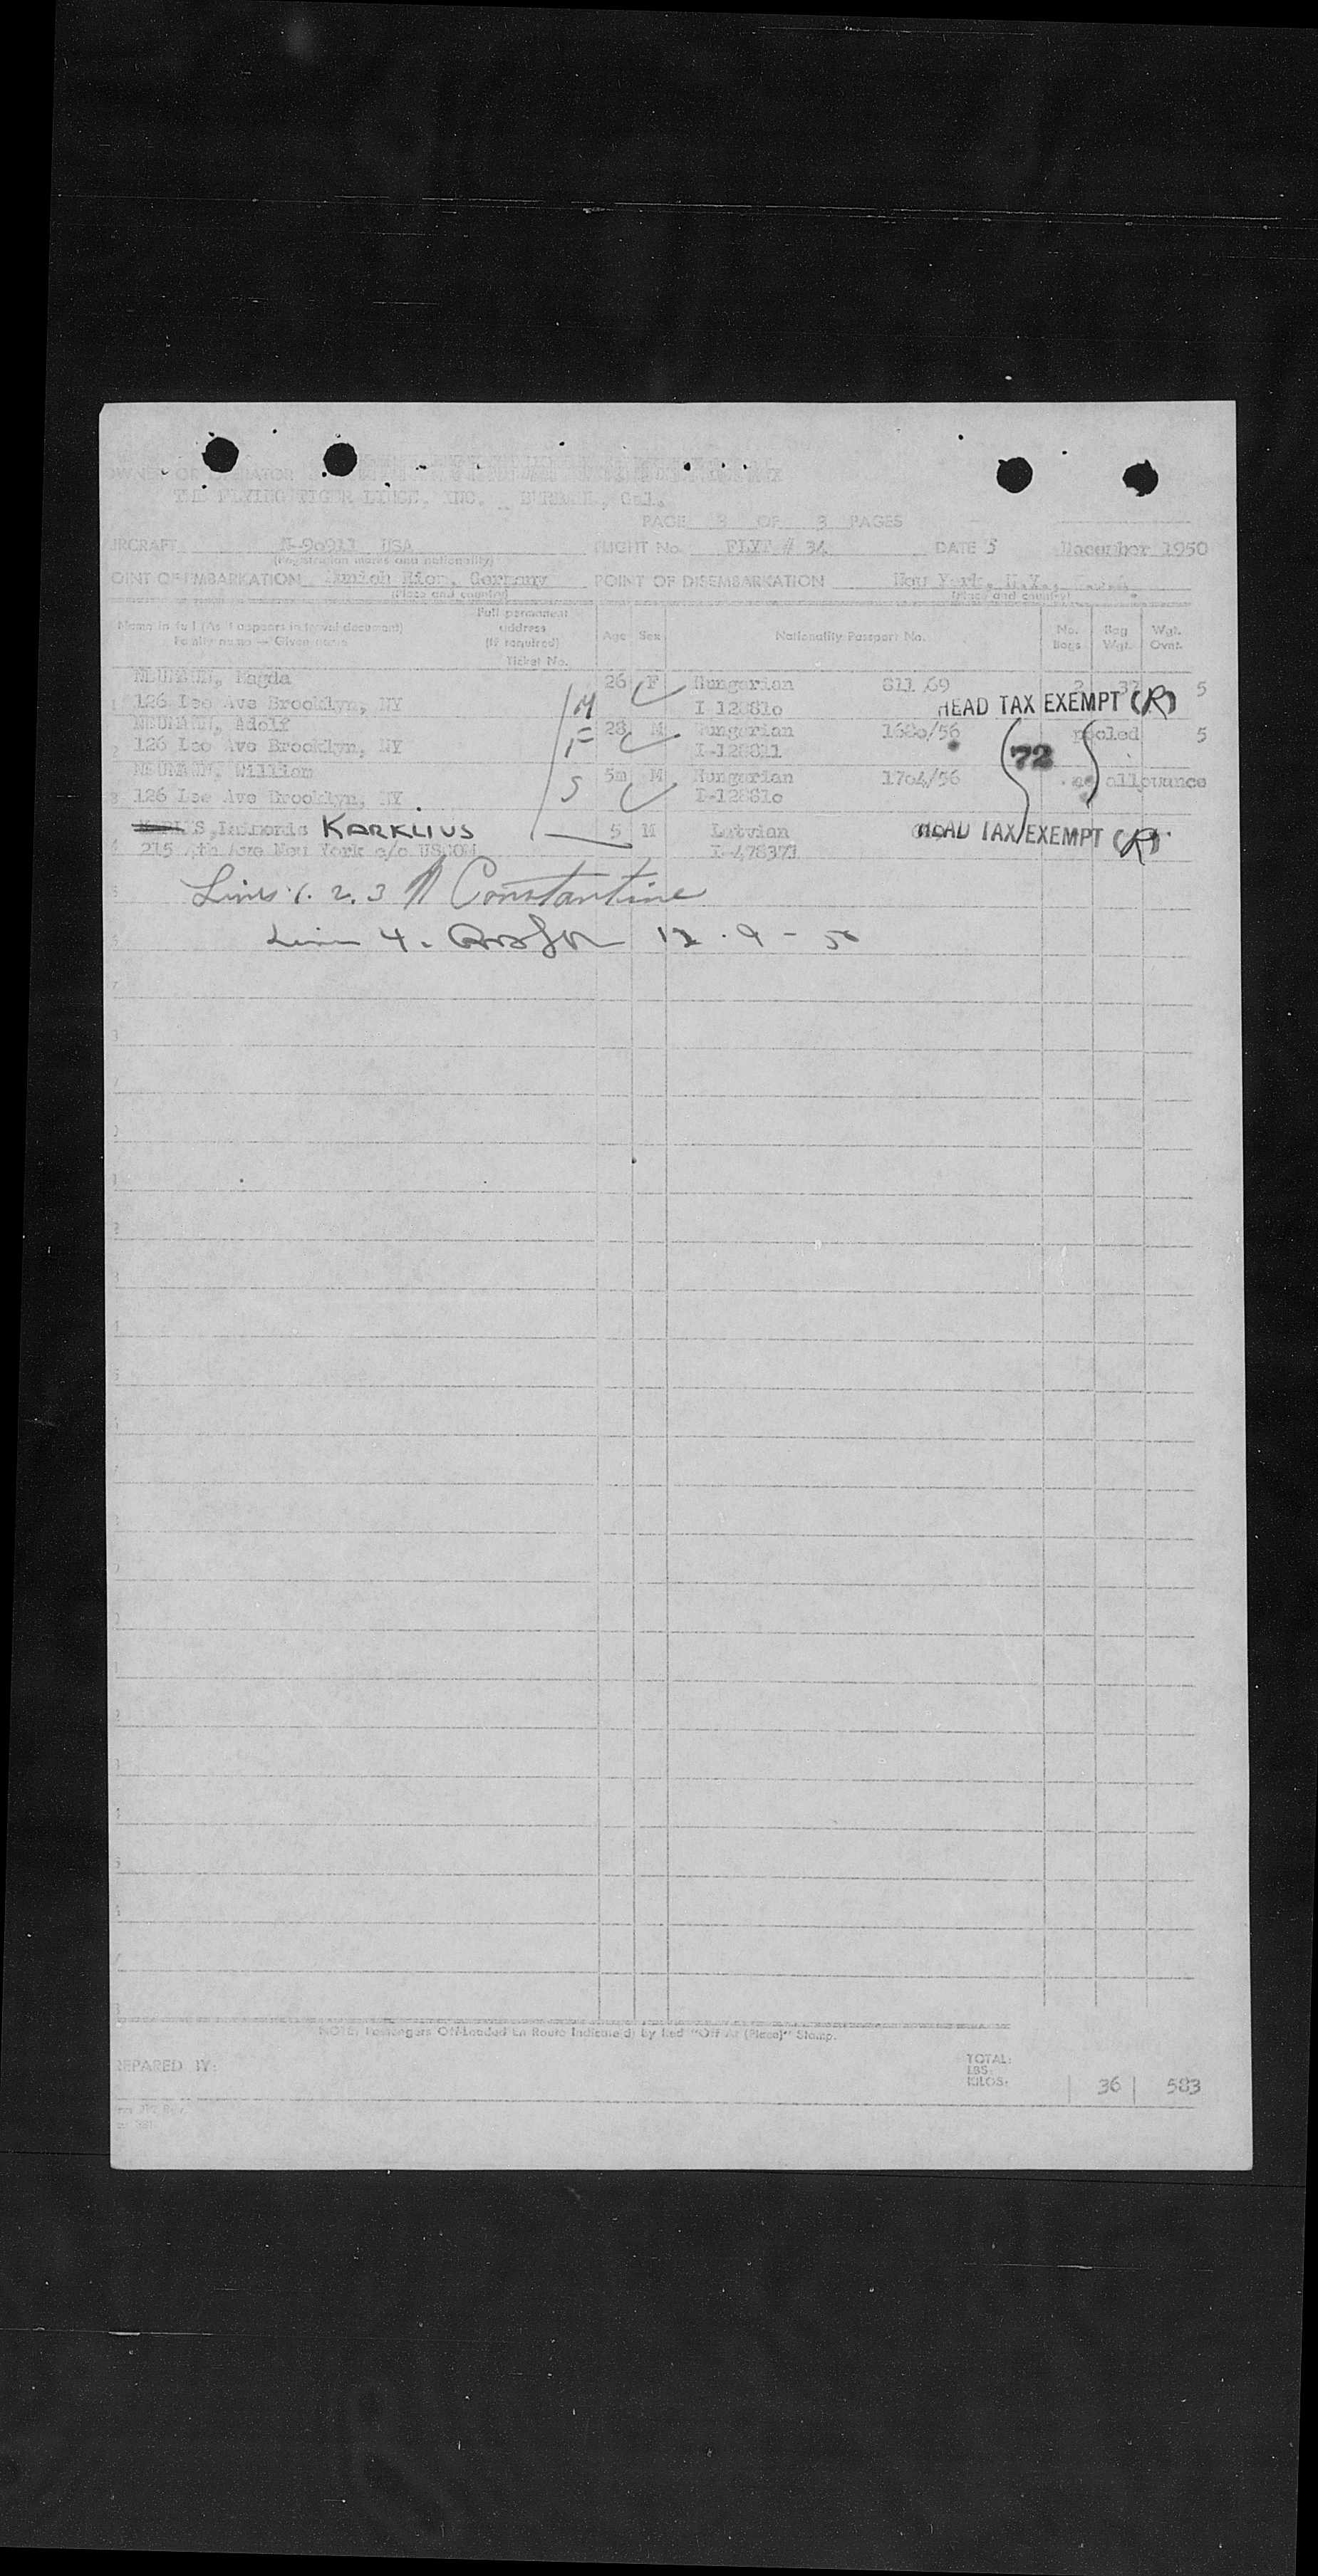 OWNER OR OPERATOR
THE FLYING TIGER LINES, INC. BURBANK, Cal.
PAGE 3 OF 3 PAGES
IRCRAFT N-90911 USA FLIGHT No. FLYT # 34 DATE 5 December 1950
(Registration marks and nationality)
OINT OF EMBARKATION Munich Riem, Germany POINT OF DISEMBARKATION New York, N.Y.,
(Place and country) (Place and country)
Name in full (As it appears in travel document) Family name — Given name
Full permanent address (if required) Ticket No.
Age Sex Nationality Passport No. No. Bags Bag Wgt. Wgt. Ovnt.
NEUMANN, Magda 26 F Hungarian 811/69 2 37 5
1 126 Lee Ave Brooklyn, NY M I 128810 HEAD TAX EXEMPT (R)
NEUMANN, Adolf 28 M Hungarian 1680/56 pooled 5
2 126 Lee Ave Brooklyn, NY F I-128811 72
NEUMANN, William 5m M Hungarian 1704/56 allowance
3 126 Lee Ave Brooklyn, NY S I-128810
KARKLIUS 5 M Latvian HEAD TAX EXEMPT (R)
4 215 4th Ave New York c/o USCOM I-478373
5 Lines 1. 2. 3 Constantine
6 Line 4. 12 - 9 - 50
7
NOTE: Passengers Off-Loaded En Route Indicated by Red "Off At (Place)" Stamp.
REPARED BY:
TOTAL:
LBS:
KILOS: 36 583